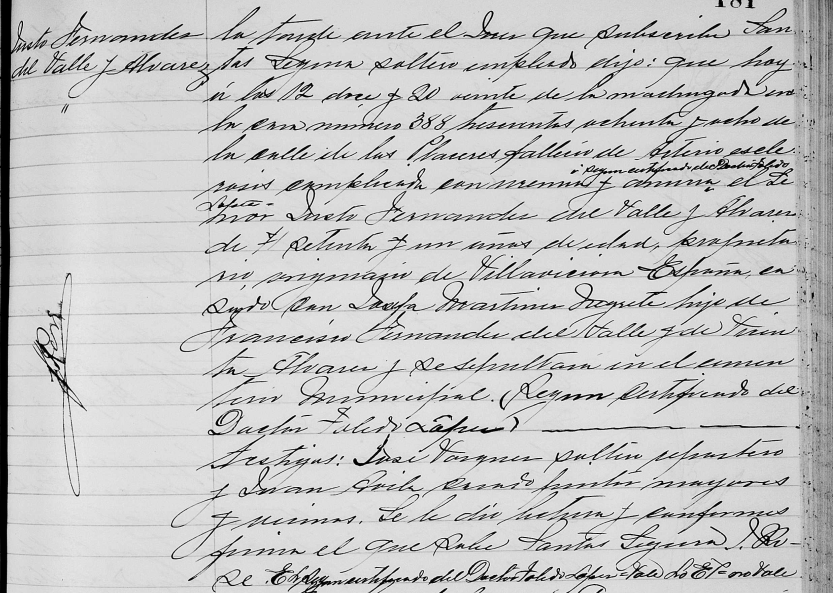 181
Justo Fernandez
del Valle y Alvarez
"
la tarde ante el Juez que subscribe San
tos Segura soltero empleado dijo: que hoy
a las 12 doce y 20 veinte de la madrugada en
la casa numero 388 trescientos ochenta y ocho de
la calle de los Placeres falleció de Arterio escle
ó segun certificado del Doctor Toledo
rosis complicada con uremia y el Se
Lopez-
ñor Justo Fernandez del Valle y Alvarez
de 71 setenta y un años de edad, propieta
rio, originario de Villaviciosa España, ca
sado con Josefa Martinez Negrete hijo de
Francisco Fernandez del Valle y de
ta Alvarez y se sepultará en el cemen
terio Municipal. (Segun certificado del
Doctor Toledo Lopez)
Testigos: José Vazquez soltero
y Juan Avila casado pintor mayores
y vecinos. Se le dio lectura y conformes
firma el que sabe Santos Segura J. Ro-
se. E.L. segun certificado del Doctor Toledo Lopez=Vale Lo E.P=no Vale